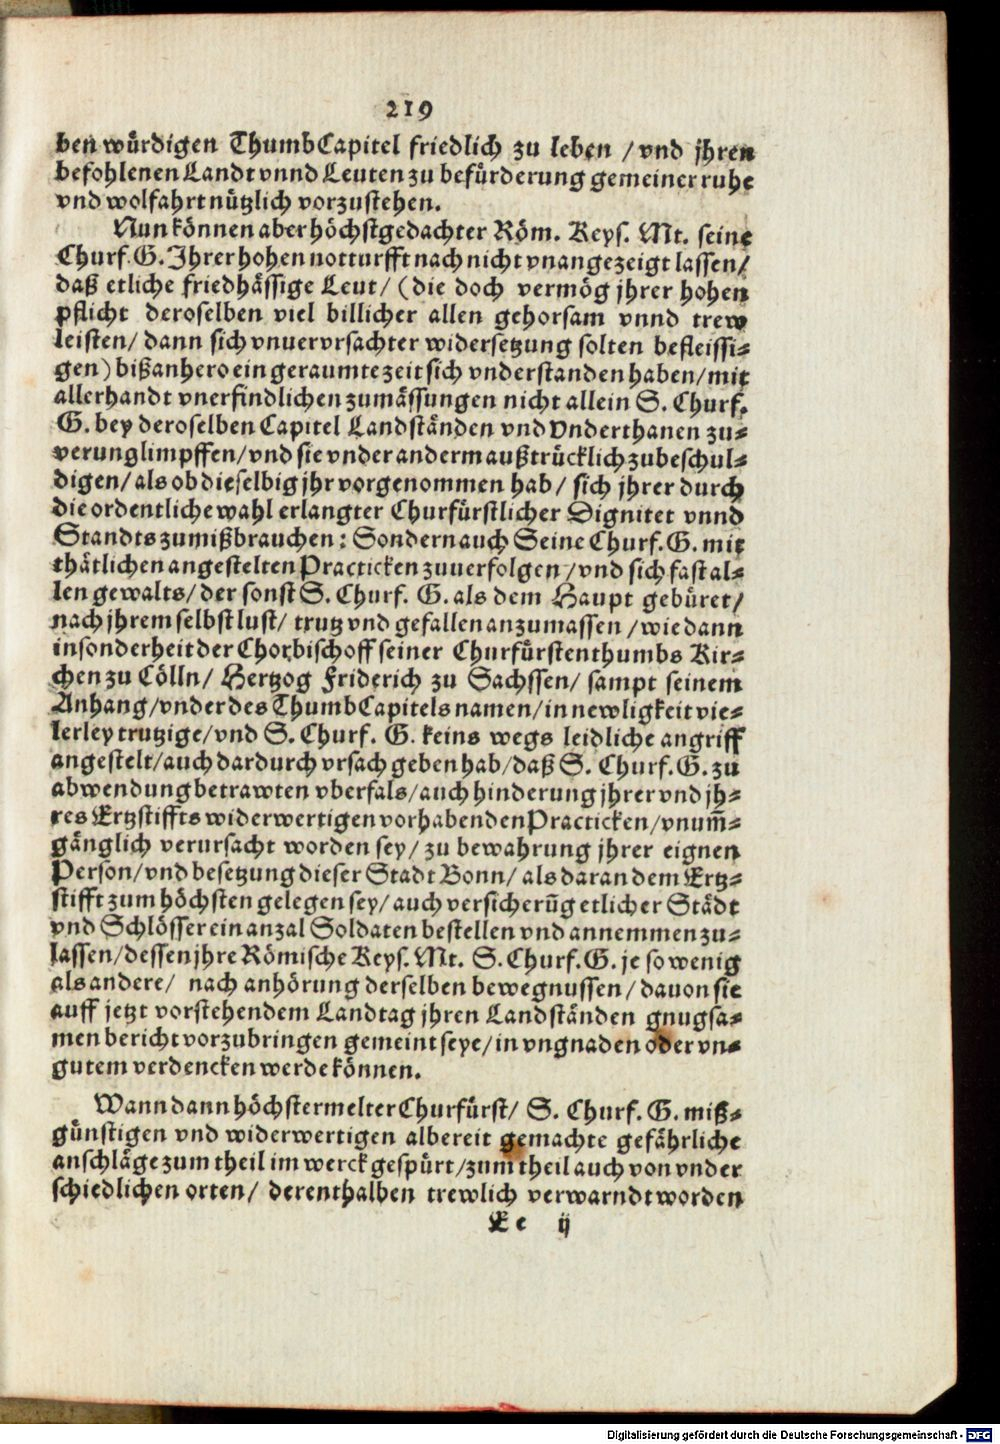 219
ben würdigen ThumbCapitel friedlich zu leben / vnd jhren
befohlenen Landt vnnd Leuten zu befürderung gemeiner ruhe
vnd wolfahrt nützlich vorzustehen.
Nun können aber höchstgedachter Röm. Keys. Mt. seine
Churf. G. Ihrer hohen notturfft nach nicht vnangezeigt lassen /
daß etliche friedhässige Leut / (die doch vermög jhrer hohen
pflicht deroselben viel billicher allen gehorsam vnnd trew
leisten / dann sich vnuervrsachter widersetzung solten befleissi-
gen) biß anhero ein geraumte zeit sich vnderstanden haben / mit
allerhandt vnerfindlichen zumässungen nicht allein S. Churf.
G. bey deroselben Capitel Landständen vnd Vnderthanen zu-
verunglimpffen / vnd sie vnder anderm außtrücklich zubeschul-
digen / als ob dieselbig jhr vorgenommen hab / sich jhrer durch
die ordentliche wahl erlangter Churfürstlicher Dignitet vnnd
Standts zumißbrauchen: Sondern auch Seine Churf. G. mit
thätlichen angestelten Practicken zuuerfolgen / vnd sich fast al-
len gewalts / der sonst S. Churf. G. als dem Haupt gebüret /
nach jhrem selbst lust / trutz vnd gefallen anzumassen / wie dann
insonderheit der Chorbischoff seiner Churfürstenthumbs Kir-
chen zu Cölln / Hertzog Friderich zu Sachssen / sampt seinem
Anhang / vnder des ThumbCapitels namen / in newligkeit vie-
lerley trutzige / vnd S. Churf. G. keins wegs leidliche angriff
angestelt / auch dardurch vrsach geben hab / daß S. Churf. G. zu
abwendung betrawten vberfals / auch hinderung jhrer vnd jh-
res Ertzstiffts widerwertigen vorhabenden Practicken / vnum̃-
gänglich verursacht worden sey / zu bewahrung jhrer eignen
Person / vnd besetzung dieser Stadt Bonn / als daran dem Ertz-
stifft zum höchsten gelegen sey / auch versicherũg etlicher Städt
vnd Schlösser ein anzal Soldaten bestellen vnd annemmen zu-
lassen / dessen jhre Römische Keys. Mt. S. Churf. G. je so wenig
als andere / nach anhörung derselben bewegnussen / dauon sie
auff jetzt vorstehendem Landtag jhren Landständen gnugsa-
men bericht vorzubringen gemeint seye / in vngnaden oder vn-
gutem verdencken werde können.
Wann dann höchstermelter Churfürst / S. Churf. G. miß-
günstigen vnd widerwertigen albereit gemachte gefährliche
anschläge zum theil im werck gespürt / zum theil auch von vnder
schiedlichen orten / derenthalben trewlich verwarndt worden
Ee ij
Digitalisierung gefördert durch die Deutsche Forschungsgemeinschaft - DFG